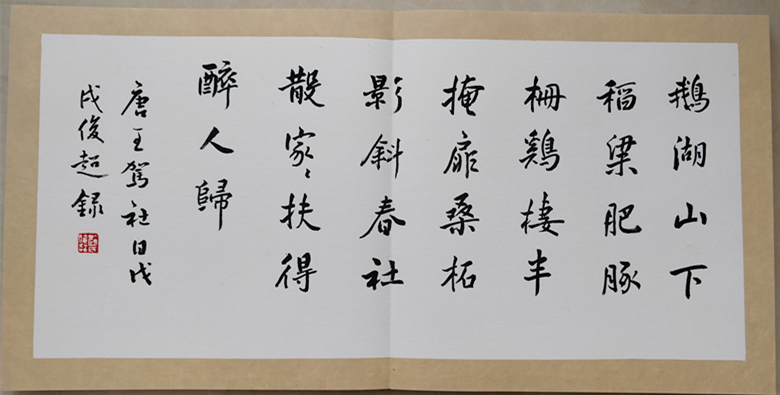 鵝湖山下
稻梁肥豚
柵鷄棲半
掩扉桑柘
影斜春社
散家〻扶得
醉人歸
唐王駕社日戊
戌俊超録